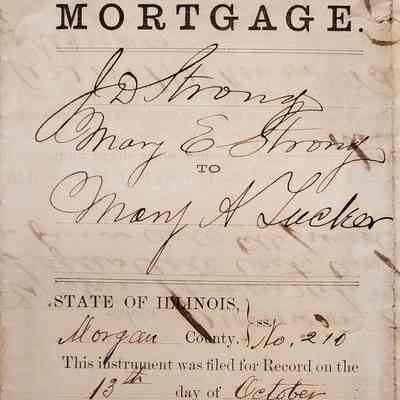 MORTGAGE.
J D Strong
Mary E Strong
TO
Mary A Tucker
STATE OF ILLINOIS, } ss.
Morgan County. No, 210
This instrument was filed for Record on the
13th day of October